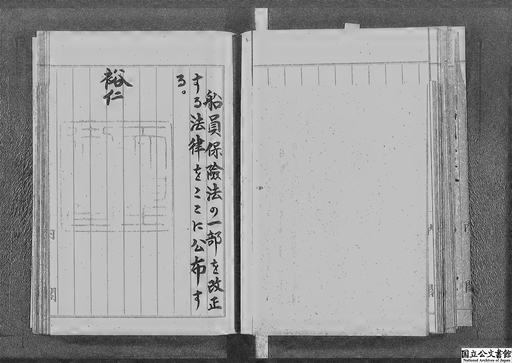 船員保険法の一部を改正
する法律をここに公布す
る。
裕仁
国立公文書館
National Archives of Japan